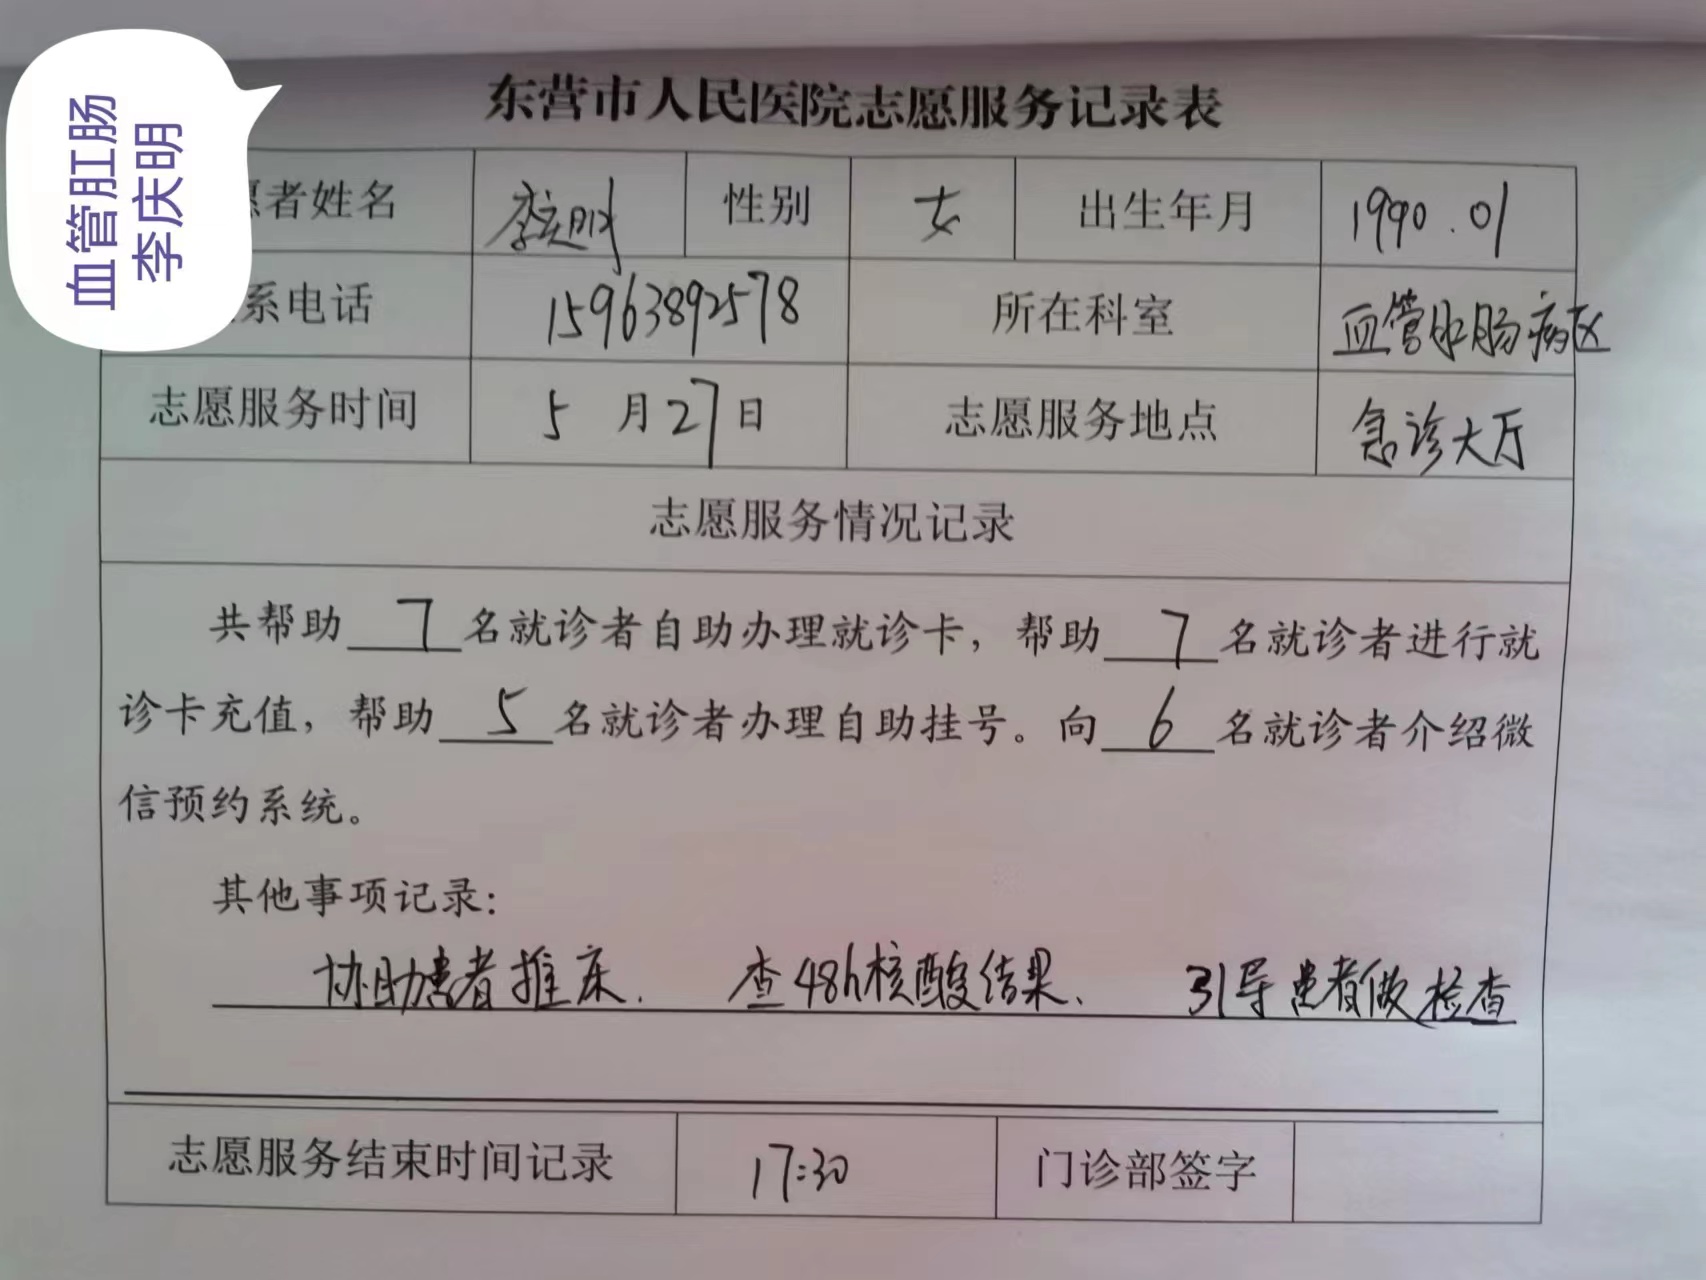 血管肛肠
李庆明
东营市人民医院志愿服务记录表
愿者姓名 李庆明 性别 女 出生年月 1990.01
系电话 15963892578 所在科室 血管肛肠病区
志愿服务时间 5月27日 志愿服务地点 急诊大厅
志愿服务情况记录
共帮助 7 名就诊者自助办理就诊卡，帮助 7 名就诊者进行就
诊卡充值，帮助 5 名就诊者办理自助挂号。向 6 名就诊者介绍微
信预约系统。
其他事项记录：
协助患者推床、 查48h核酸结果、 引导患者做检查
志愿服务结束时间记录 17:30 门诊部签字